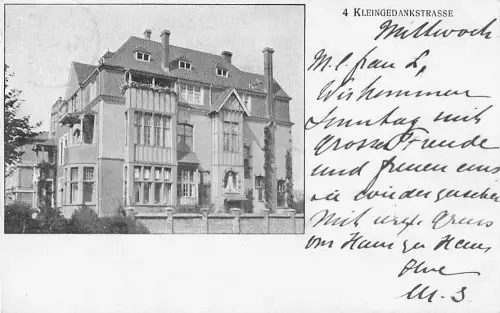 4 KLEINGEDANKSTRASSE
Mittwoch
M. l. Frau L,
Wir kommen
Sonntag mit
grosser Freude
und freuen uns
sie wiederzusehen
Mit Gruss
von Haus zu Haus
Ihre
M. S.